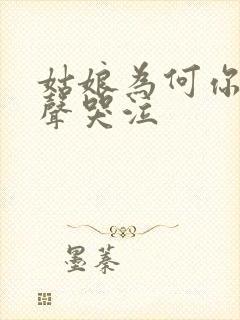 姑娘為何你
聲哭泣
墨蓁